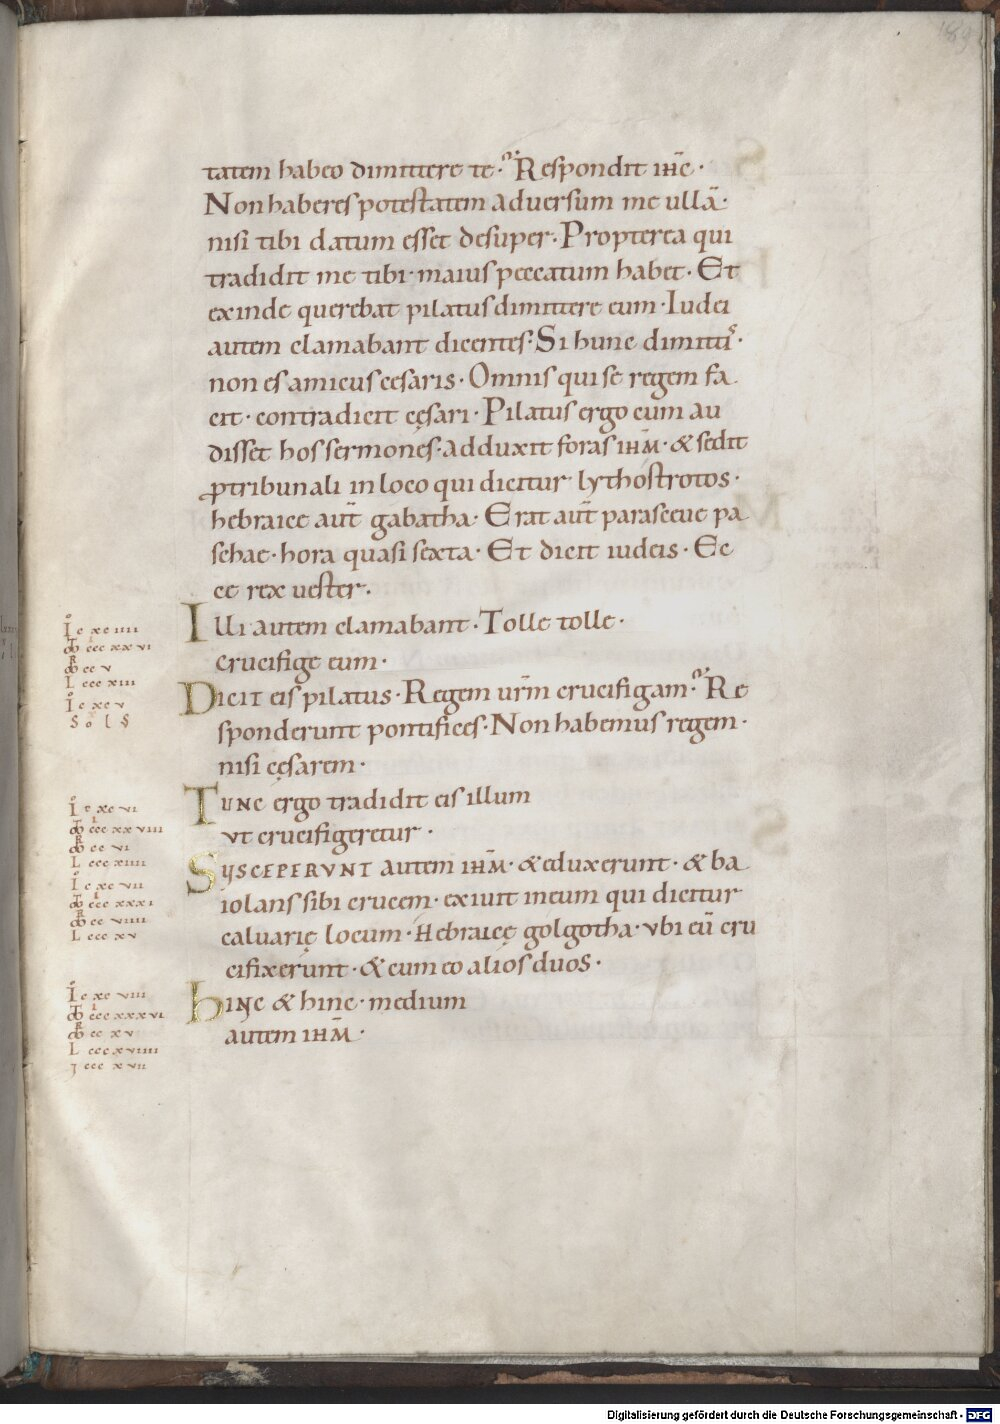 189
tatem habeo dimittere te· Respondit ihc̄·
Non haberes potestatem adversum me ullā·
nisi tibi datum esset desuper· Propterea qui
tradidit me tibi· maius peccatum habet· Et
exinde querebat pilatus dimittere eum· Iudei
autem clamabant dicentes· Si hunc dimittiſ·
non es amicus cesaris· Omnis qui se regem fa
cit· contradicit cęsari· Pilatus ergo cum au
disset hos sermones· adduxit foras ihm̄· & sedit
ꝓ tribunali in loco qui dicitur lythostrotos·
hebraice aut̄ gabatha· Erat aut̄ parasceue pa
schae· hora quasi sexta· Et dicit iudeis· Ec
ce rex uester·
Illi autem clamabant· Tolle tolle·
crucifige eum·
Dicit eis pilatus· Regem urm̄ crucifigam· Re
sponderunt pontifices· Non habemus regem·
nisi cęsarem·
Tunc ergo tradidit eis illum
vt crucifigeretur·
Sysceperunt autem ihm̄· & eduxerunt· & ba
iolans sibi crucem· exiuit in eum qui dicitur
caluarię locum· Hebraicę golgotha· vbi eū cru
cifixerunt· & cum eo alios duos·
hinc & hinc· medium
autem ihm̄·
Io c xc iiii
ccc xx vi
cc v
L ccc xiii
Io c xc v
S o l s
Io c xc vi
ccc xx viii
cc vi
L ccc xiiii
Io c xc vii
ccc xxxi
cc viiii
L ccc xv
Io c xc viii
ccc xxx vi
cc xv
L ccc xviiii
ccc xvii
Digitalisierung gefördert durch die Deutsche Forschungsgemeinschaft - DFG